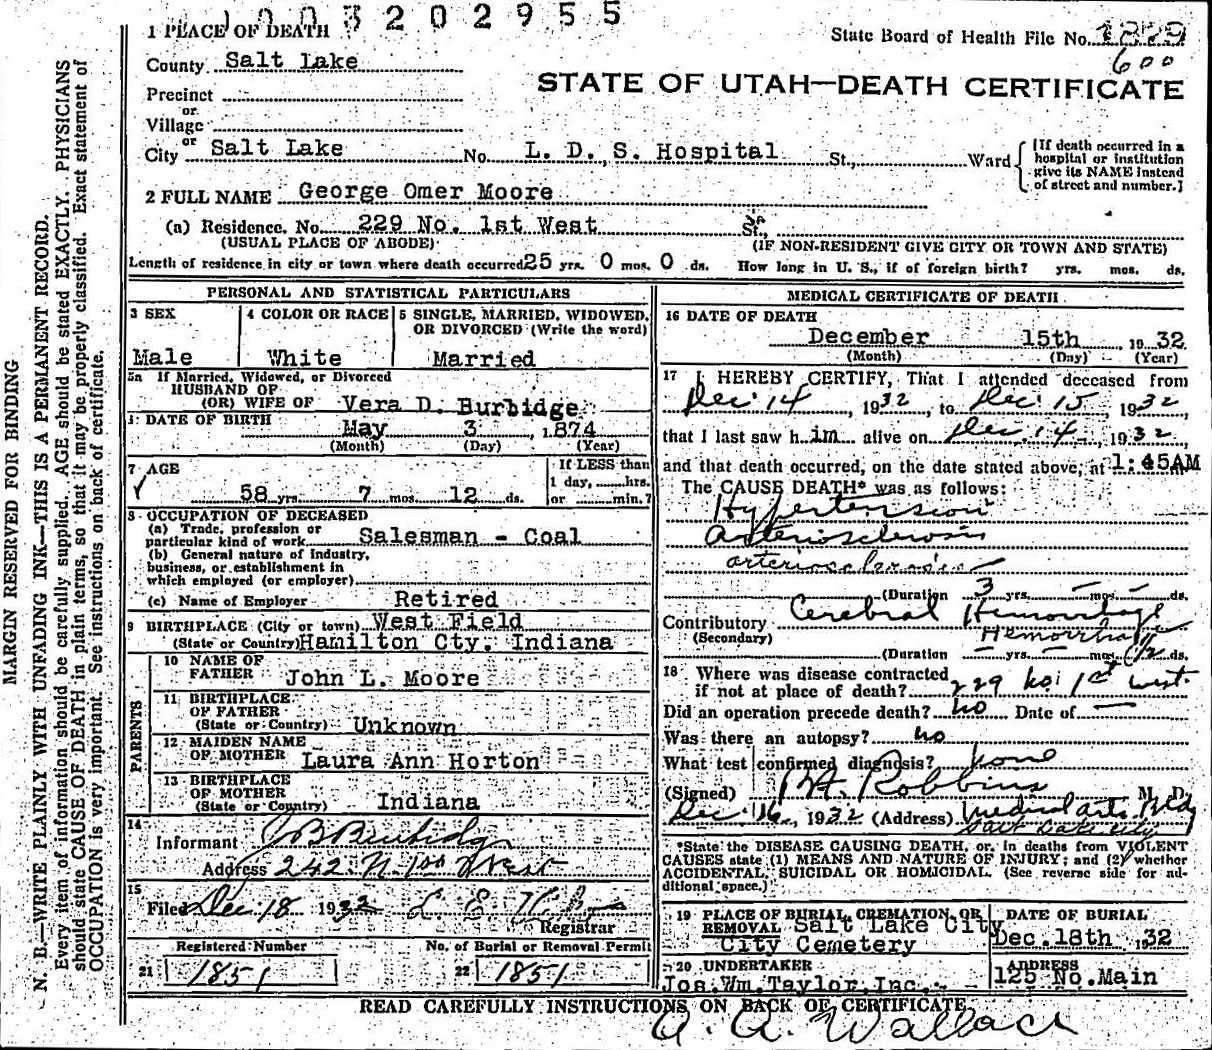 1003202955
1 PLACE OF DEATH
State Board of Health File No. 1829
600
County Salt Lake
STATE OF UTAH—DEATH CERTIFICATE
Precinct
or
Village
or
City Salt Lake No. L. D. S. Hospital St., Ward
[If death occurred in a
hospital or institution
give its NAME instead
of street and number.]
2 FULL NAME George Omer Moore
(a) Residence. No. 229 No. 1st West St.,
(USUAL PLACE OF ABODE) (IF NON-RESIDENT GIVE CITY OR TOWN AND STATE)
Length of residence in city or town where death occurred 25 yrs. 0 mos. 0 ds. How long in U. S., if of foreign birth? yrs. mos. ds.
PERSONAL AND STATISTICAL PARTICULARS
3 SEX
Male
4 COLOR OR RACE
White
5 SINGLE, MARRIED, WIDOWED,
OR DIVORCED (Write the word)
Married
5a If Married, Widowed, or Divorced
HUSBAND OF
(OR) WIFE OF Vera D. Burbidge
DATE OF BIRTH
May 3, 1874
(Month) (Day) (Year)
7 AGE
58 yrs. 7 mos. 12 ds.
If LESS than
1 day, hrs.
or min.?
8 OCCUPATION OF DECEASED
(a) Trade, profession or
particular kind of work Salesman - Coal
(b) General nature of industry,
business, or establishment in
which employed (or employer)
(c) Name of Employer Retired
9 BIRTHPLACE (City or town) West Field
(State or Country) Hamilton Cty. Indiana
PARENTS
10 NAME OF
FATHER John L. Moore
11 BIRTHPLACE
OF FATHER
(State or Country) Unknown
12 MAIDEN NAME
OF MOTHER Laura Ann Horton
13 BIRTHPLACE
OF MOTHER
(State or Country) Indiana
14
Informant J B Burbidge
Address 242 N. 1st West
15
Filed Dec. 18 1932
Registrar
Registered Number No. of Burial or Removal Permit
21 1851 22 1851
MEDICAL CERTIFICATE OF DEATH
16 DATE OF DEATH
December 15th, 1932
(Month) (Day) (Year)
17 I HEREBY CERTIFY, That I attended deceased from
Dec 14, 1932, to Dec 15, 1932,
that I last saw him alive on Dec. 14, 1932,
and that death occurred, on the date stated above, at 1:45AM
The CAUSE DEATH* was as follows:
Hypertension
Arteriosclerosis
arteriosclerosis
(Duration 3 yrs. — mos. — ds.
Contributory Cerebral Hemorrhage
(Secondary) Hemorrhage
(Duration — yrs. — mos. 1/2 ds.
18 Where was disease contracted
if not at place of death? 229 No. 1st West.
Did an operation precede death? no Date of —
Was there an autopsy? no
What test confirmed diagnosis? none
(Signed) Robbins M. D.
Dec. 16, 1932 (Address) Medical arts Bldg
Salt Lake City
*State the DISEASE CAUSING DEATH, or, in deaths from VIOLENT
CAUSES state (1) MEANS AND NATURE OF INJURY; and (2) whether
ACCIDENTAL, SUICIDAL OR HOMICIDAL. (See reverse side for ad-
ditional space.)
19 PLACE OF BURIAL, CREMATION, OR
REMOVAL Salt Lake City
City Cemetery
DATE OF BURIAL
Dec. 18th, 1932
20 UNDERTAKER
Jos. Wm. Taylor Inc.
ADDRESS
125 No. Main
READ CAREFULLY INSTRUCTIONS ON BACK OF CERTIFICATE.
A. A. Wallace
MARGIN RESERVED FOR BINDING
N. B.—WRITE PLAINLY WITH UNFADING INK—THIS IS A PERMANENT RECORD.
Every item of information should be carefully supplied. AGE should be stated EXACTLY. PHYSICIANS
should state CAUSE OF DEATH in plain terms, so that it may be properly classified. Exact statement of
OCCUPATION is very important. See instructions on back of certificate.